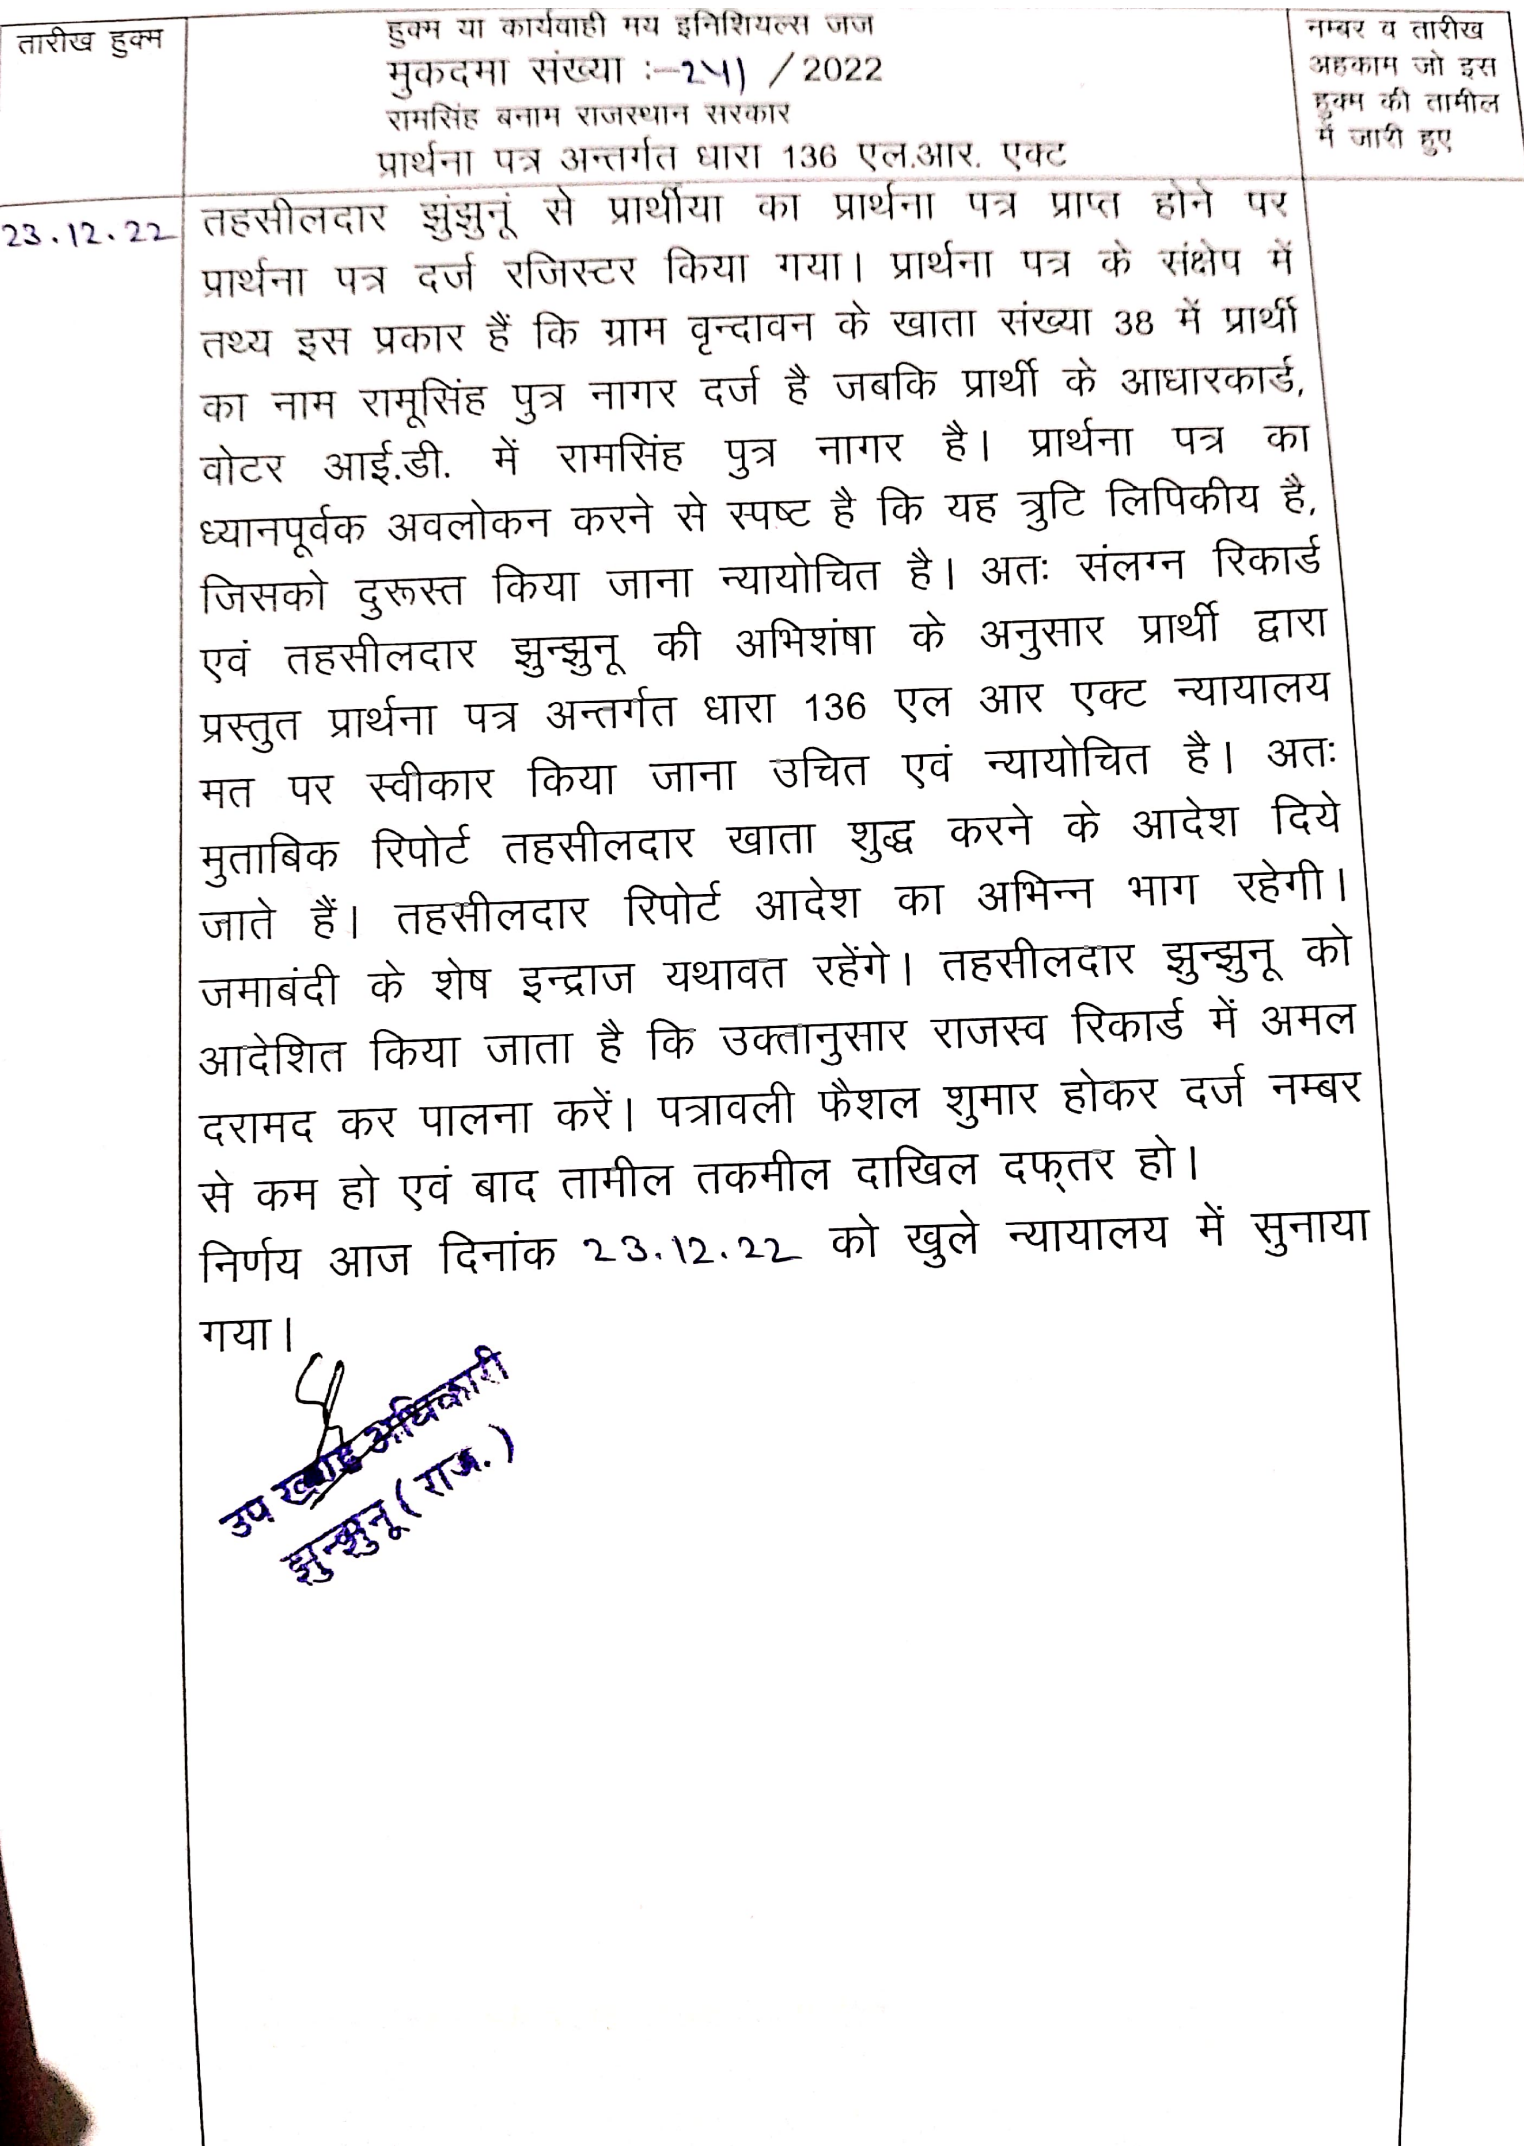 तारीख हुक्म
हुक्म या कार्यवाही मय इनिशियल्स जज
मुकदमा संख्या :–241 / 2022
रामसिंह बनाम राजस्थान सरकार
प्रार्थना पत्र अन्तर्गत धारा 136 एल.आर. एक्ट
नम्बर व तारीख
अहकाम जो इस
हुक्म की तामील
में जारी हुए
23.12.22
तहसीलदार झुंझुनूं से प्रार्थीया का प्रार्थना पत्र प्राप्त होने पर
प्रार्थना पत्र दर्ज रजिस्टर किया गया। प्रार्थना पत्र के संक्षेप में
तथ्य इस प्रकार हैं कि ग्राम वृन्दावन के खाता संख्या 38 में प्रार्थी
का नाम रामूसिंह पुत्र नागर दर्ज है जबकि प्रार्थी के आधारकार्ड,
वोटर आई.डी. में रामसिंह पुत्र नागर है। प्रार्थना पत्र का
ध्यानपूर्वक अवलोकन करने से स्पष्ट है कि यह त्रुटि लिपिकीय है,
जिसको दुरूस्त किया जाना न्यायोचित है। अतः संलग्न रिकार्ड
एवं तहसीलदार झुन्झुनू की अभिशंषा के अनुसार प्रार्थी द्वारा
प्रस्तुत प्रार्थना पत्र अन्तर्गत धारा 136 एल आर एक्ट न्यायालय
मत पर स्वीकार किया जाना उचित एवं न्यायोचित है। अतः
मुताबिक रिपोर्ट तहसीलदार खाता शुद्ध करने के आदेश दिये
जाते हैं। तहसीलदार रिपोर्ट आदेश का अभिन्न भाग रहेगी।
जमाबंदी के शेष इन्द्राज यथावत रहेंगे। तहसीलदार झुन्झुनू को
आदेशित किया जाता है कि उक्तानुसार राजस्व रिकार्ड में अमल
दरामद कर पालना करें। पत्रावली फैशल शुमार होकर दर्ज नम्बर
से कम हो एवं बाद तामील तकमील दाखिल दफ्तर हो।
निर्णय आज दिनांक 23.12.22 को खुले न्यायालय में सुनाया
गया।
उप खण्ड अधिकारी
झुन्झुनू (राज.)